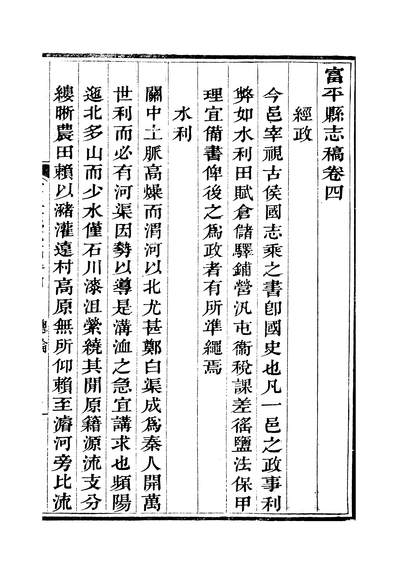 富平縣志稿卷四
經政
今邑宰視古侯國志乘之書卽國史也凡一邑之政事利
弊如水利田賦倉儲驛鋪營汛屯衞税課差徭鹽法保甲
理宜備書俾後之爲政者有所準繩焉
水利
關中土脈高燥而渭河以北尤甚鄭白渠成爲秦人開萬
世利而必有河渠因勢以導是溝洫之急宜講求也頻陽
迤北多山而少水僅石川漆沮縈繞其開原籍源流支分
縷晰農田賴以瀦灌遠村高原無所仰賴至濬河旁比流
總論